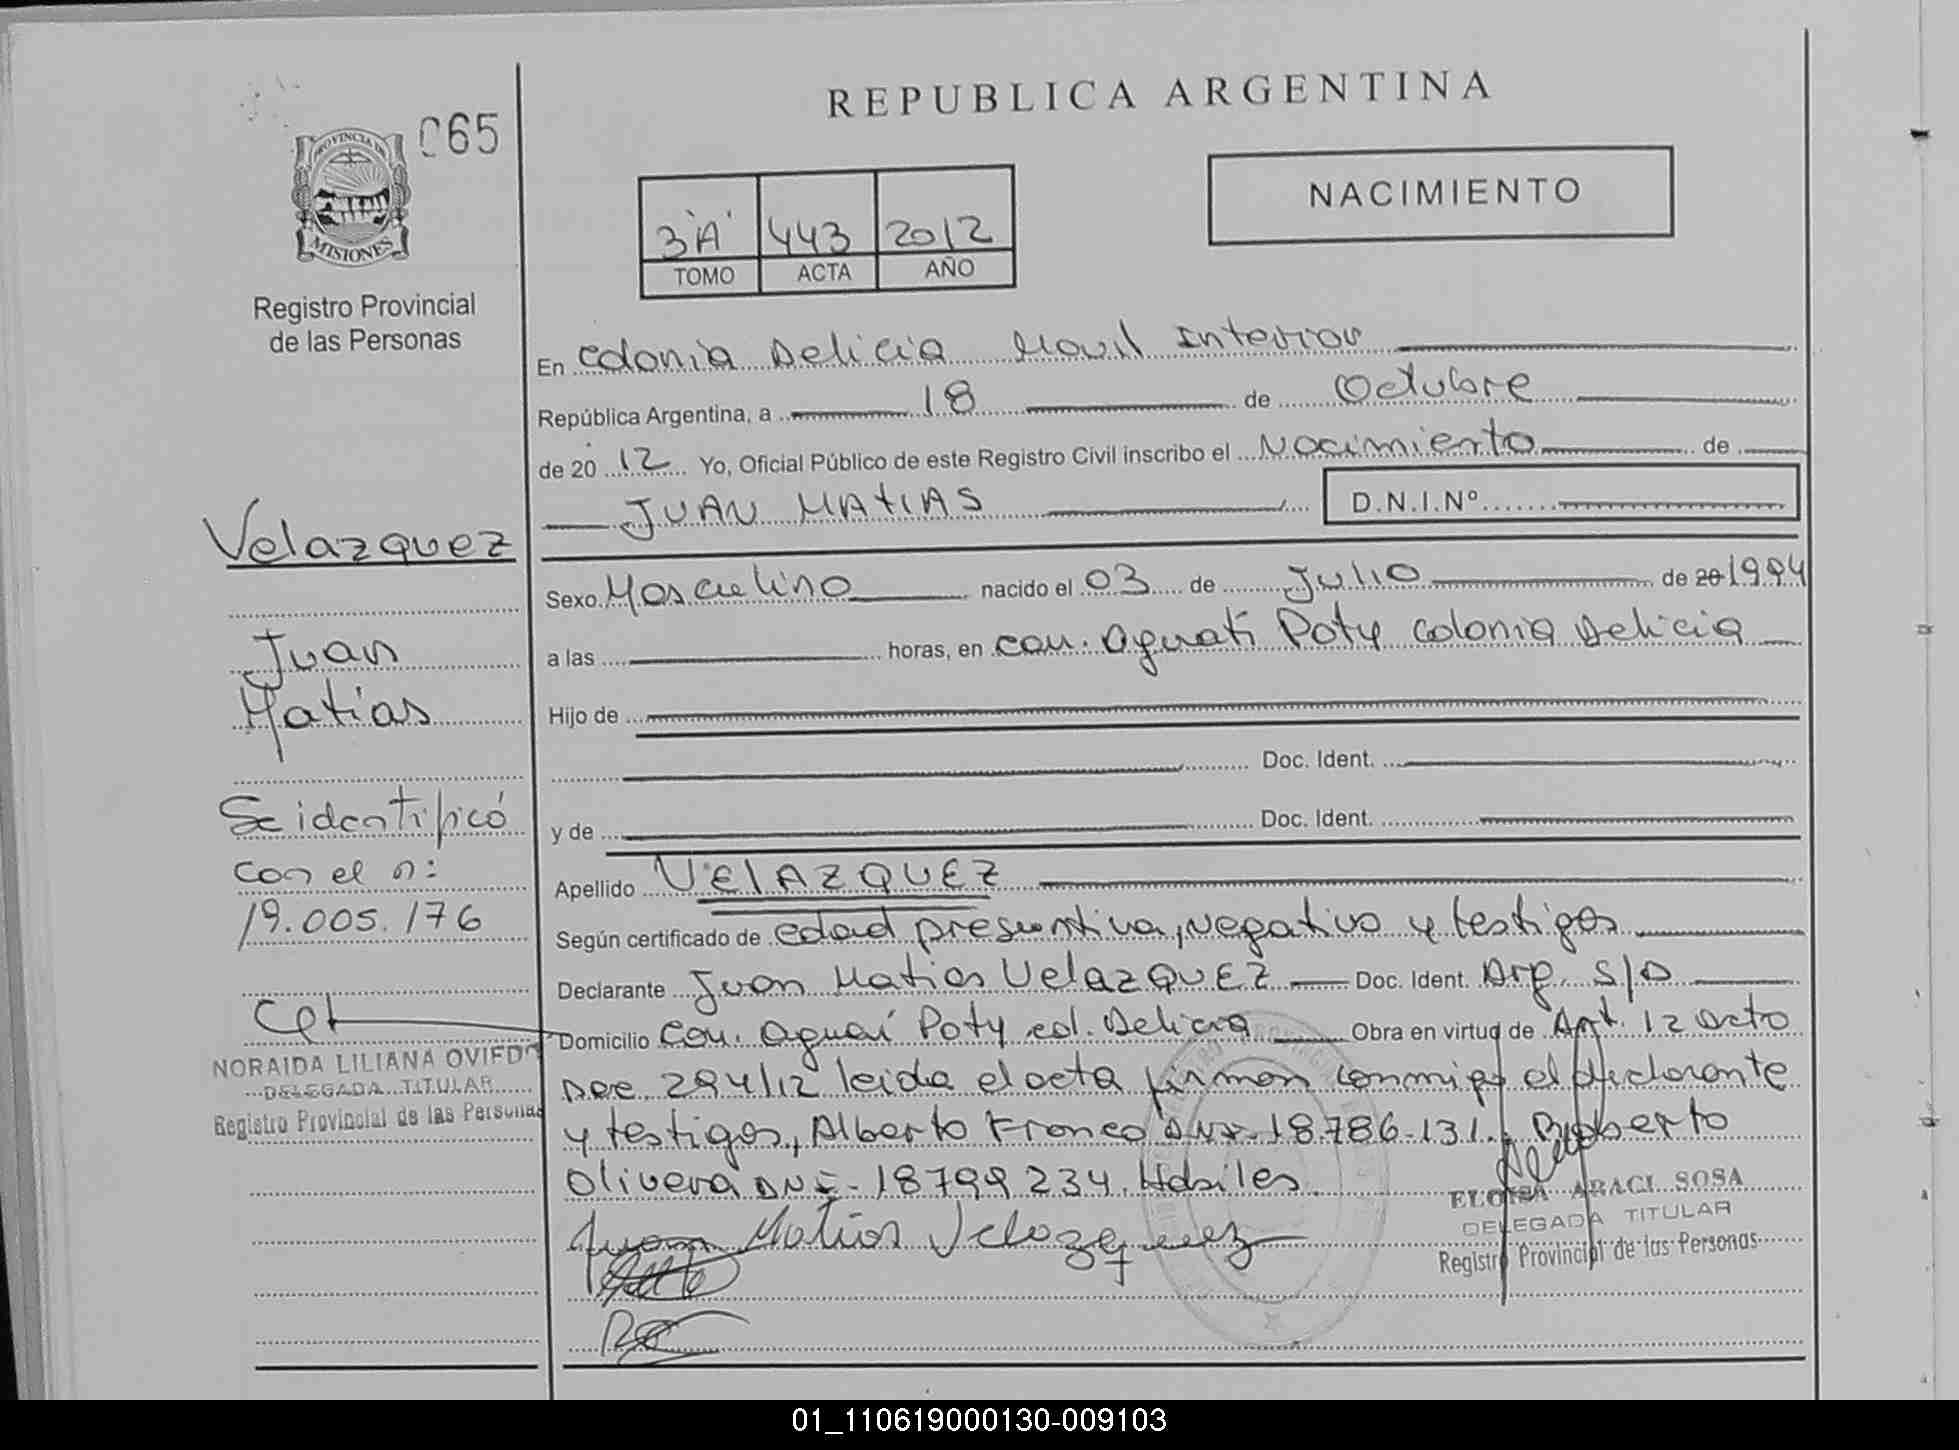 REPUBLICA ARGENTINA
065
PROVINCIA DE
MISIONES
Registro Provincial
de las Personas
NACIMIENTO
3 "A" 443 2012
TOMO ACTA AÑO
En Colonia Delicia Movil Interior
República Argentina, a 18 de Octubre
de 20 12 Yo, Oficial Público de este Registro Civil inscribo el Nacimiento de
JUAN MATIAS D.N.I.Nº
Sexo Masculino nacido el 03 de Julio de 20 1994
a las horas, en com. Aguati Poty Colonia Delicia
Hijo de
Doc. Ident.
y de Doc. Ident.
Apellido VELAZQUEZ
Según certificado de edad presuntiva, negativo y testigos
Declarante Juan Matias VelazQUEZ Doc. Ident. Arg. S/D
Domicilio Com. Aguaí Poty col. Delicia Obra en virtud de Art. 12 Dcto
Dec. 294/12 leida el acta firman conmigo el declarante
y testigos, Alberto Franco DNI. 18.786.131. Roberto
Olivera DNI - 18799234. Habiles
Juan Matias Velazquez
ELOISA ARACI SOSA
DELEGADA TITULAR
Registro Provincial de las Personas
Velazquez
Juan
Matias
Se identificó
con el n:
19.005.176
NORAIDA LILIANA OVIEDO
DELEGADA TITULAR
Registro Provincial de las Personas
01_110619000130-009103